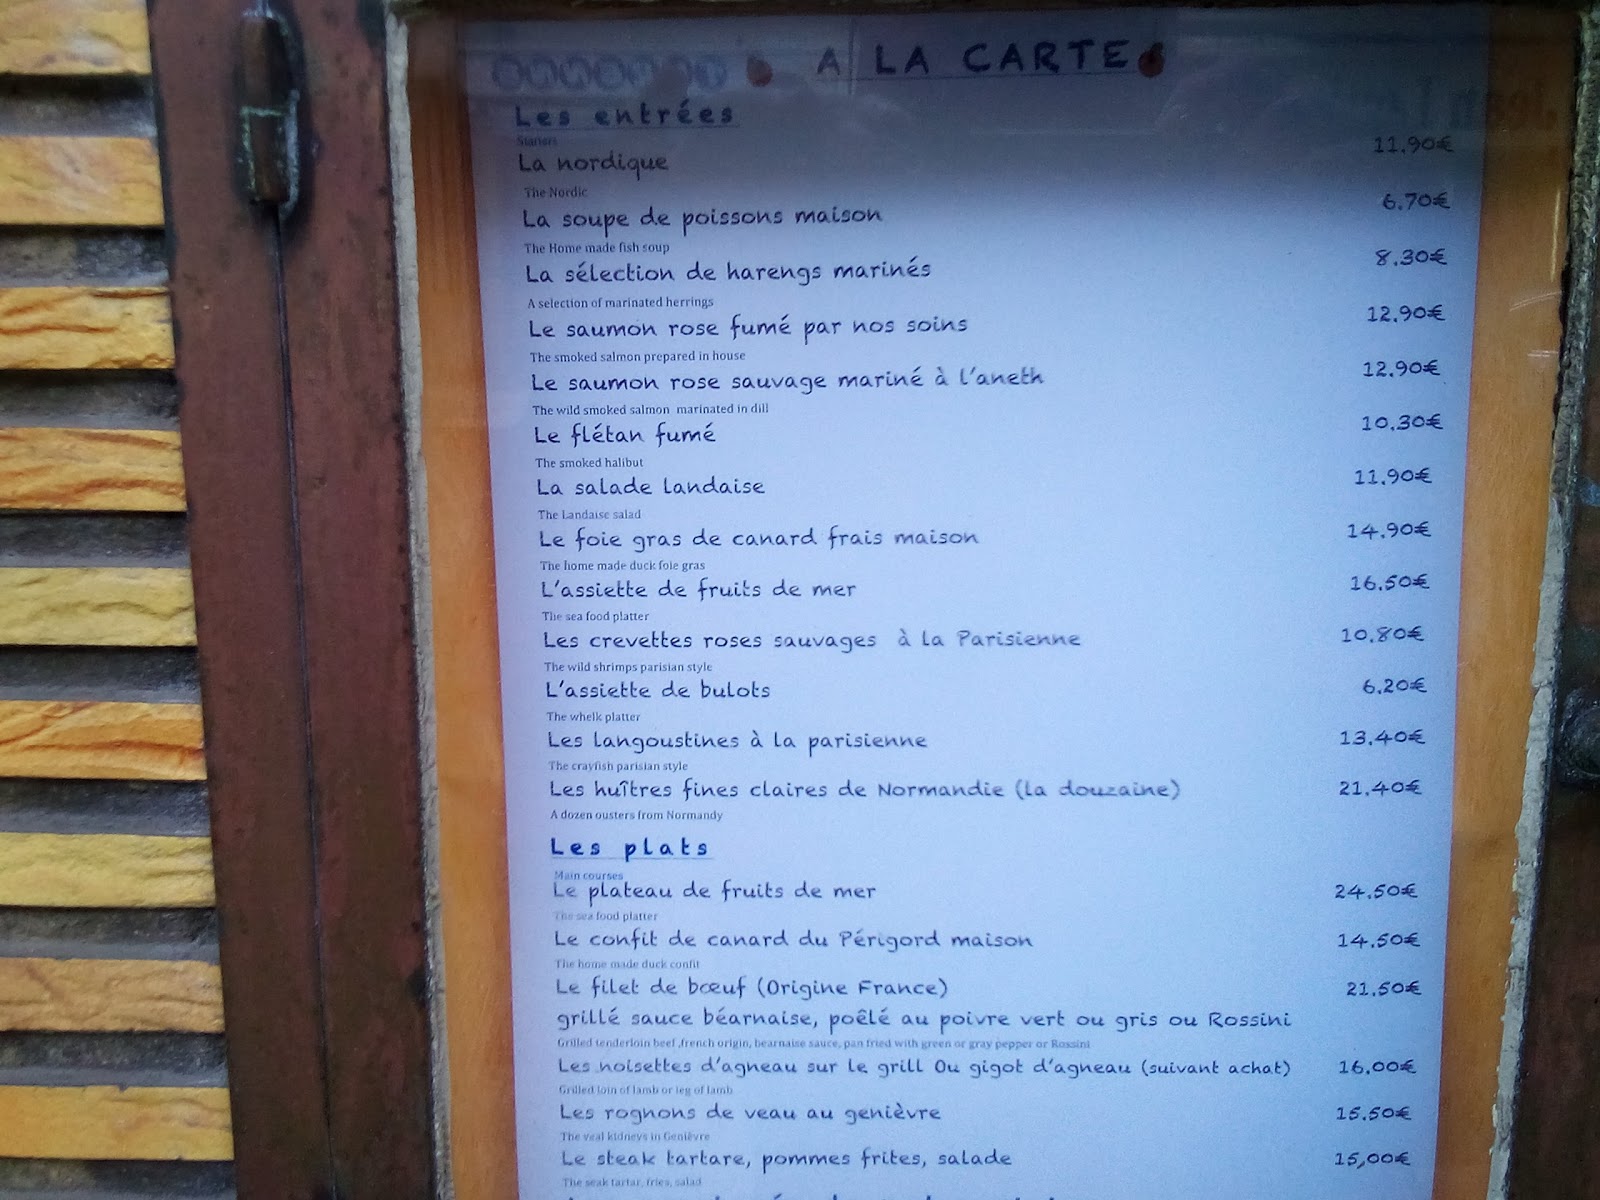 A LA CARTE
Les entrées
Starters
La nordique 11.90€
The Nordic
La soupe de poissons maison 6.70€
The Home made fish soup
La sélection de harengs marinés 8.30€
A selection of marinated herrings
Le saumon rose fumé par nos soins 12.90€
The smoked salmon prepared in house
Le saumon rose sauvage mariné à l'aneth 12.90€
The wild smoked salmon marinated in dill
Le flétan fumé 10.30€
The smoked halibut
La salade landaise 11.90€
The Landaise salad
Le foie gras de canard frais maison 14.90€
The home made duck foie gras
L'assiette de fruits de mer 16.50€
The sea food platter
Les crevettes roses sauvages à la Parisienne 10.80€
The wild shrimps parisian style
L'assiette de bulots 6.20€
The whelk platter
Les langoustines à la parisienne 13.40€
The crayfish parisian style
Les huîtres fines claires de Normandie (la douzaine) 21.40€
A dozen ousters from Normandy
Les plats
Main courses
Le plateau de fruits de mer 24.50€
The sea food platter
Le confit de canard du Périgord maison 14.50€
The home made duck confit
Le filet de bœuf (Origine France) 21.50€
grillé sauce béarnaise, poêlé au poivre vert ou gris ou Rossini
Grilled tenderloin beef ,french origin, bearnaise sauce, pan fried with green or gray pepper or Rossini
Les noisettes d'agneau sur le grill Ou gigot d'agneau (suivant achat) 16.00€
Grilled loin of lamb or leg of lamb
Les rognons de veau au genièvre 15.50€
The veal kidneys in Genièvre
Le steak tartare, pommes frites, salade 15,00€
The seak tartar, fries, salad